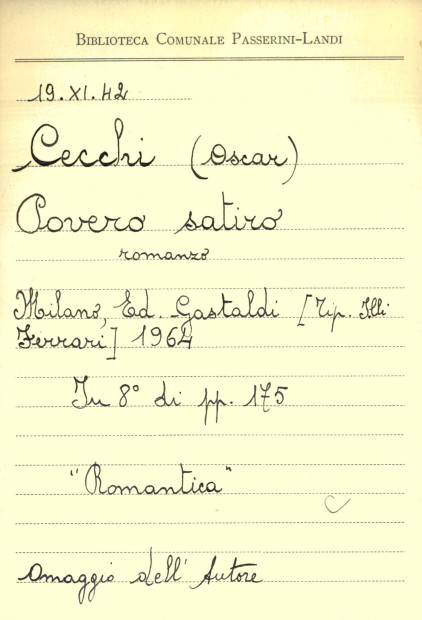 BIBLIOTECA COMUNALE PASSERINI-LANDI
19.XI.42
Cecchi (Oscar)
Povero satiro
romanzo
Milano, Ed. Gastaldi [Tip. F.lli
Ferrari] 1964
In 8° di pp. 175
"Romantica"
Omaggio dell'Autore